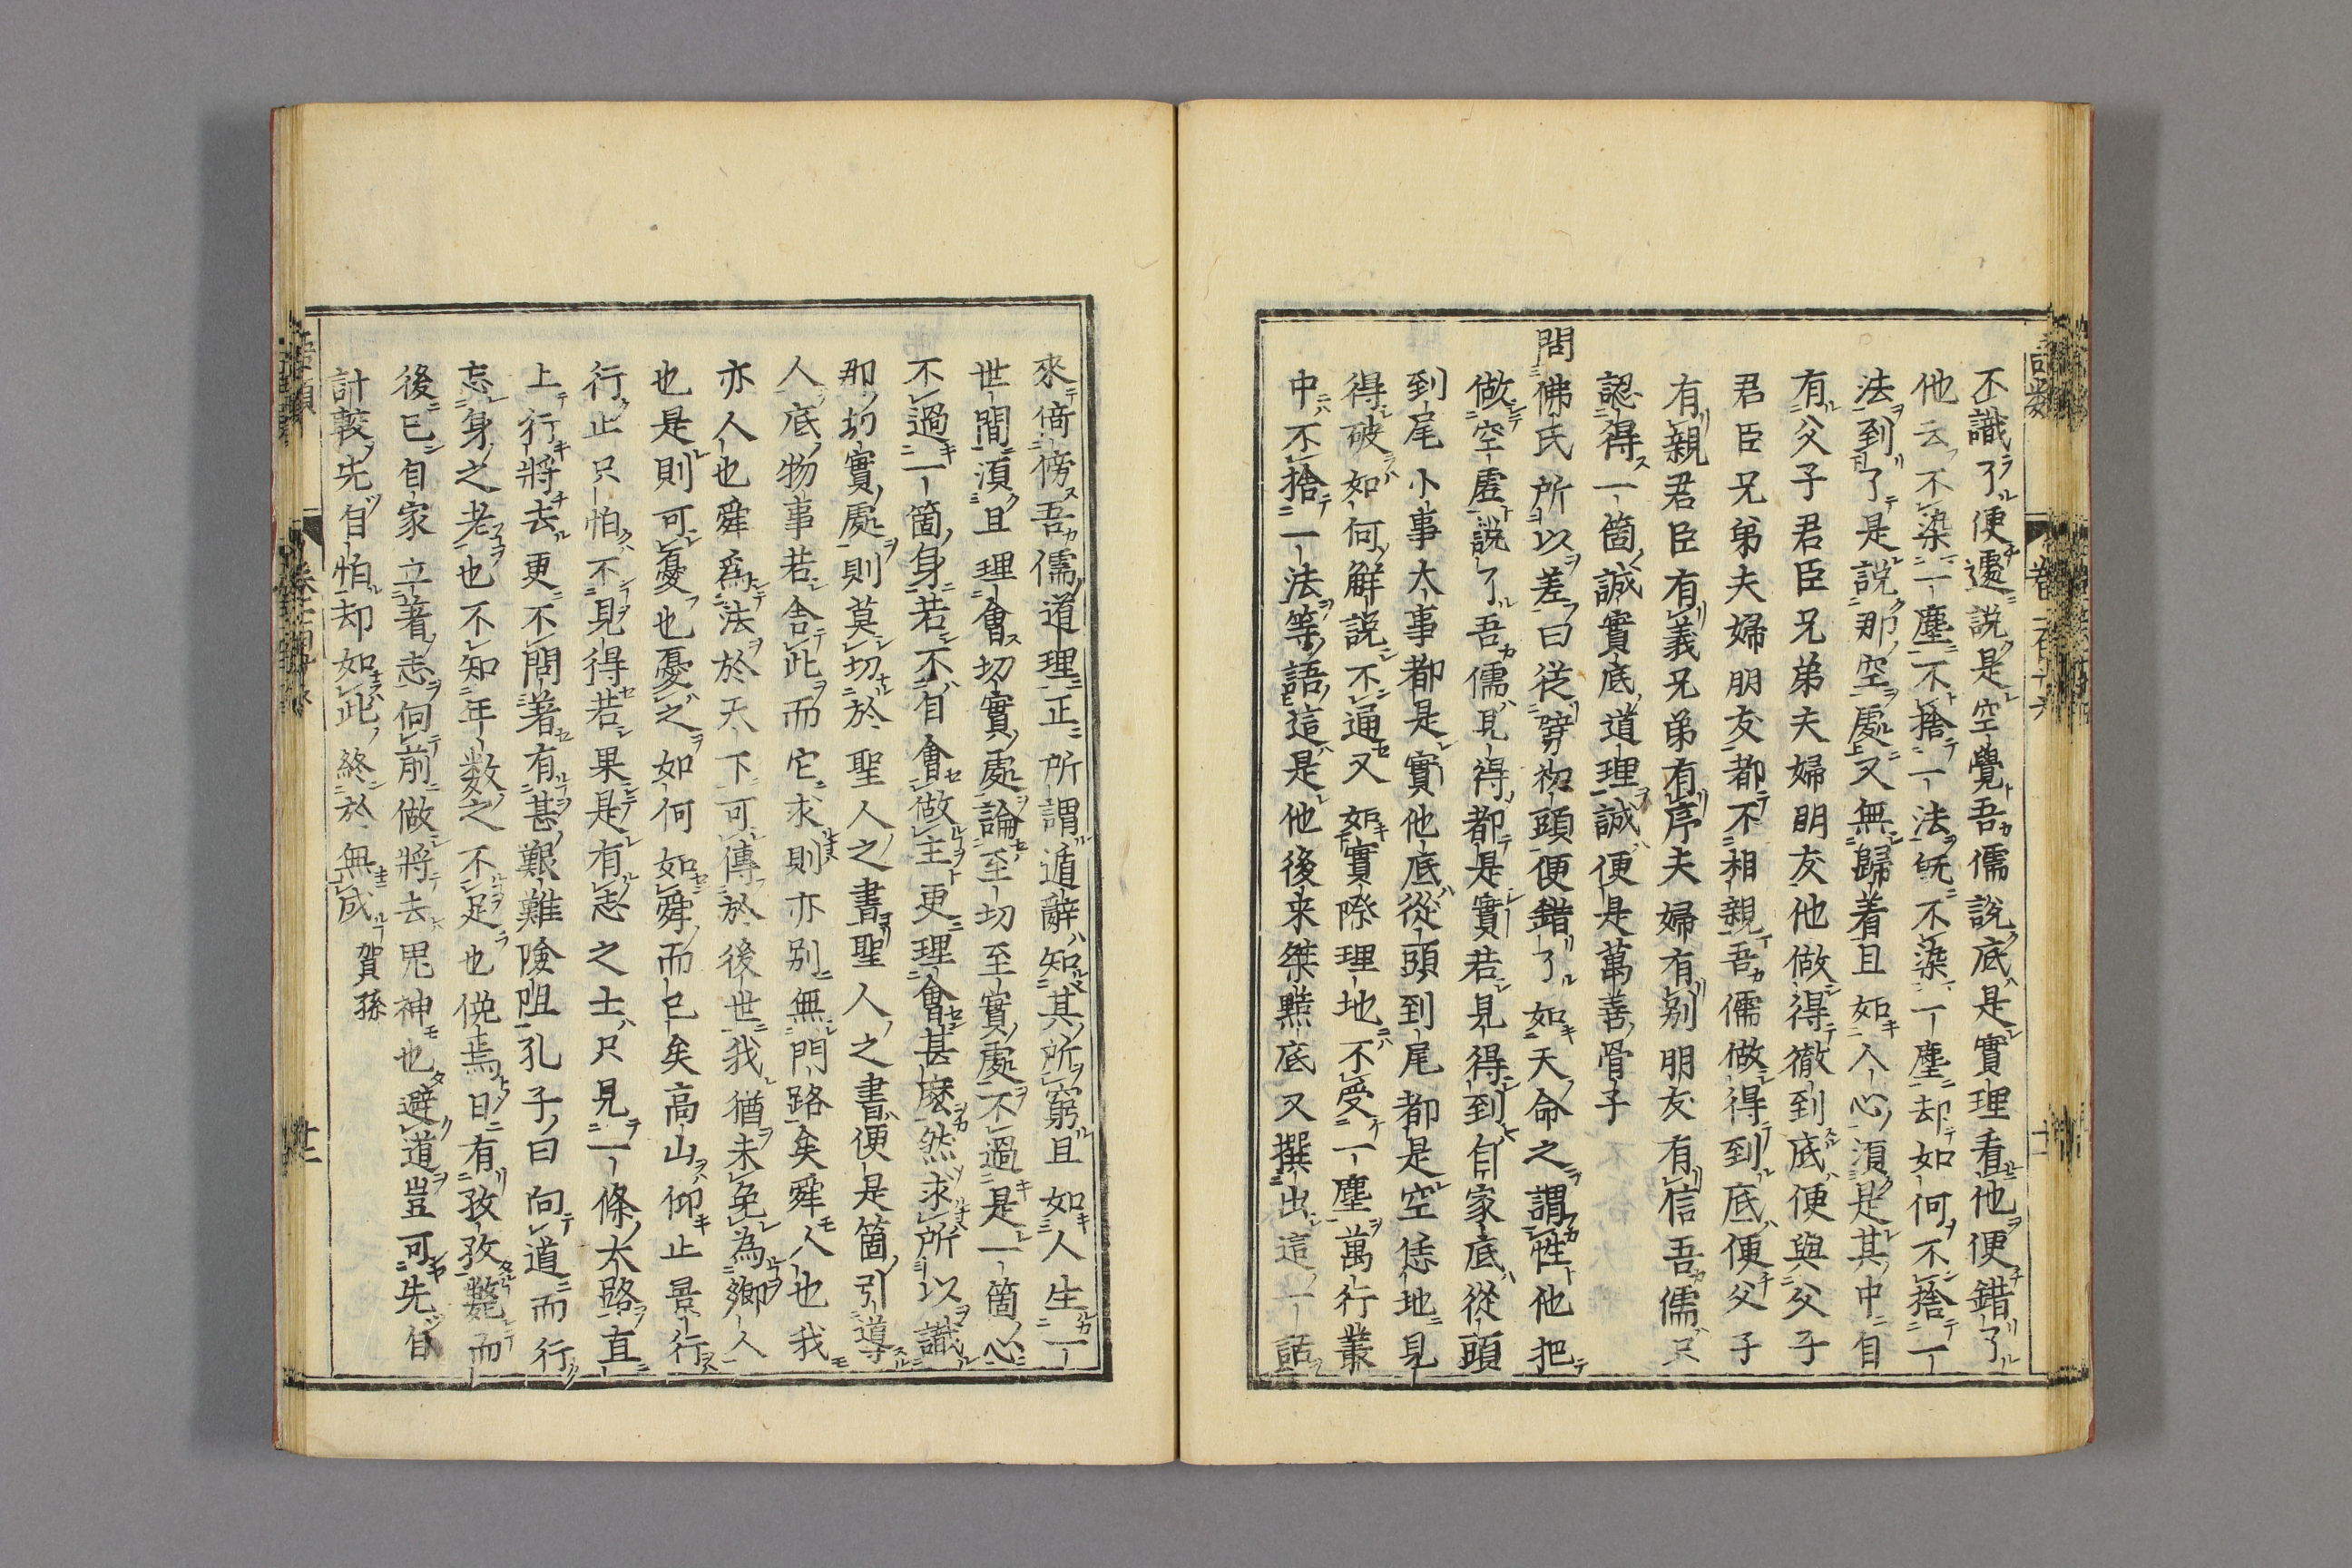 不識了便遽說是空覺吾儒說底是實理看他便錯了
他云不染一塵不捨一法既不染一塵却如何不捨一
法到了是說那空處又無歸着且如人心須是其中自
有父子君臣兄弟夫婦朋友他做得徹到底便與父子
君臣兄弟夫婦朋友都不相親吾儒做得到底便父子
有親君臣有義兄弟有序夫婦有別朋友有信吾儒只
認得一箇誠實底道理誠便是萬善骨子
問佛氏所以差曰從劈初頭便錯了如天命之謂性他把
做空虛說了吾儒見得都是實若見得到自家底從頭
到尾小事大事都是實他底從頭到尾都是空恁地見
得破如何解說不通又如實際理地不受一塵萬行叢
中不捨一法等語這是他後来桀黠底又撰出這一話
來倚傍吾儒道理正所謂遁辭知其所窮且如人生一
世間須且理會切實處論至切至實處不過是一箇心
不過一箇身若不自會做主更理會甚麼然求所以識
那切實處則莫切於聖人之書聖人之書便是箇引導
人底物事若舍此而它求則亦别無門路矣舜人也我
亦人也舜爲法於天下可傳於後世我猶未免為鄉人
也是則可憂也憂之如何如舜而已矣高山仰止景行
行止只怕不見得若果是有志之士只見一條大路直
上行將去更不問著有甚艱難險阻孔子曰向道而行
忘身之老也不知年数之不足也俛焉日有孜孜斃而
後已自家立著志向前做將去鬼神也避道豈可先自
計較先自怕却如此終於無成 賀孫